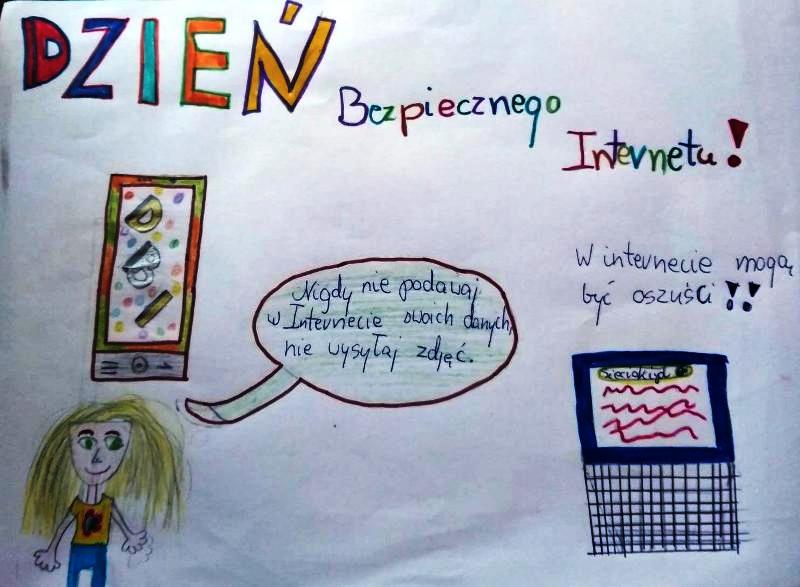 DZIEŃ
Bezpiecznego
Internetu!
Nigdy nie podawaj
w Internecie swoich danych,
nie wysyłaj zdjęć.
W internecie mogą
być oszuści!!